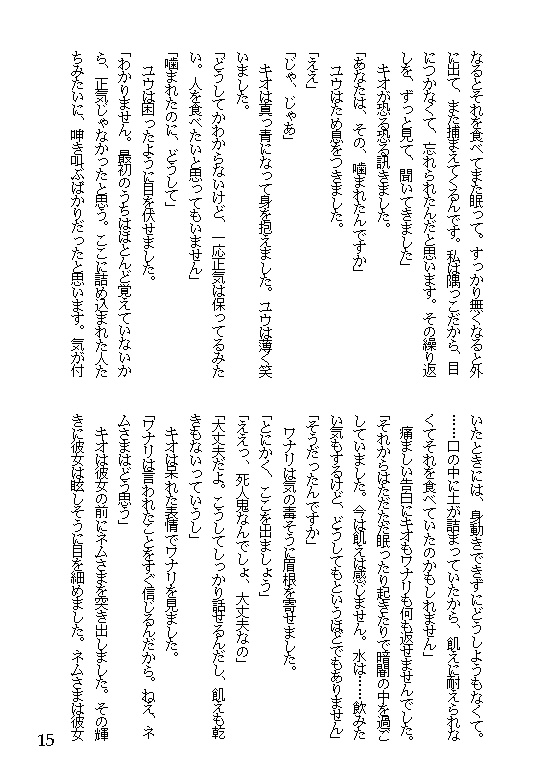 なるとそれを食べてまた眠って。すっかり無くなると外
に出て、また捕まえてくるんです。私は隅っこだから、目
につかなくて、忘れられたんだと思います。その繰り返
しを、ずっと見て、聞いてきました」
　キオが恐る恐る訊きました。
「あなたは、その、噛まれたんですか」
　ユウはため息をつきました。
「ええ」
「じゃ、じゃあ」
　キオは真っ青になって身を抱えました。ユウは薄く笑
いました。
「どうしてかわからないけど、一応正気は保ってるみた
い。人を食べたいと思ってもいません」
「噛まれたのに、どうして」
　ユウは困ったように目を伏せました。
「わかりません。最初のうちはほとんど覚えていないか
ら、正気じゃなかったと思う。ここに詰め込まれた人た
ちみたいに、呻き叫ぶばかりだったと思います。気が付
いたときには、身動きできずにどうしようもなくて。
……口の中に土が詰まっていたから、飢えに耐えられな
くてそれを食べていたのかもしれません」
　痛ましい告白にキオもワナリも何も返せませんでした。
「それからはただただ眠ったり起きたりで暗闇の中を過ご
していました。今は飢えは感じません。水は……飲みた
い気もするけど、どうしてもというほどでもありません」
「そうだったんですか」
　ワナリは気の毒そうに眉根を寄せました。
「とにかく、ここを出ましょう」
「ええっ、死人鬼なんでしょ、大丈夫なの」
「大丈夫だよ。こうしてしっかり話せるんだし、飢えも乾
きもないっていうし」
　キオは呆れた表情でワナリを見ました。
「ワナリは言われたことをすぐ信じるんだから。ねえ、ネ
ムさまはどう思う」
　キオは彼女の前にネムさまを突き出しました。その輝
きに彼女は眩しそうに目を細めました。ネムさまは彼女
15